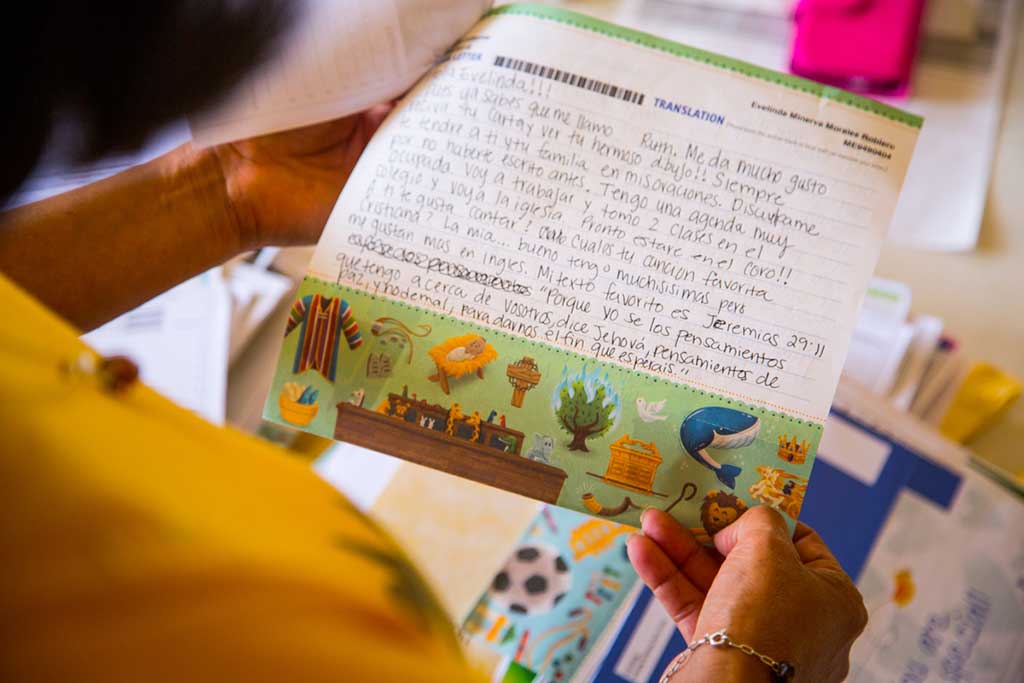 LETTER
TRANSLATION
Evelinda Minerva Morales Roblero
ME9490404
Evelinda!!!
ya sabes que me llamo Ruth. Me da mucho gusto
tu carta y ver tu hermoso dibujo!! Siempre
te tendre a ti y tu familia en mis oraciones. Disculpame
por no haberte escrito antes. Tengo una agenda muy
ocupada. Voy a trabajar y tomo 2 clases en el
colegio y voy a la iglesia. Pronto estare en el coro!!
A ti te gusta cantar? Cual es tu cancion favorita
cristiana? La mia... bueno tengo muchisisimas pero
me gustan mas en ingles. Mi texto favorito es Jeremias 29:11
"Porque yo se los pensamientos
que tengo acerca de vosotros, dice Jehová, pensamientos de
paz, y no de mal, para darnos el fin que esperais."